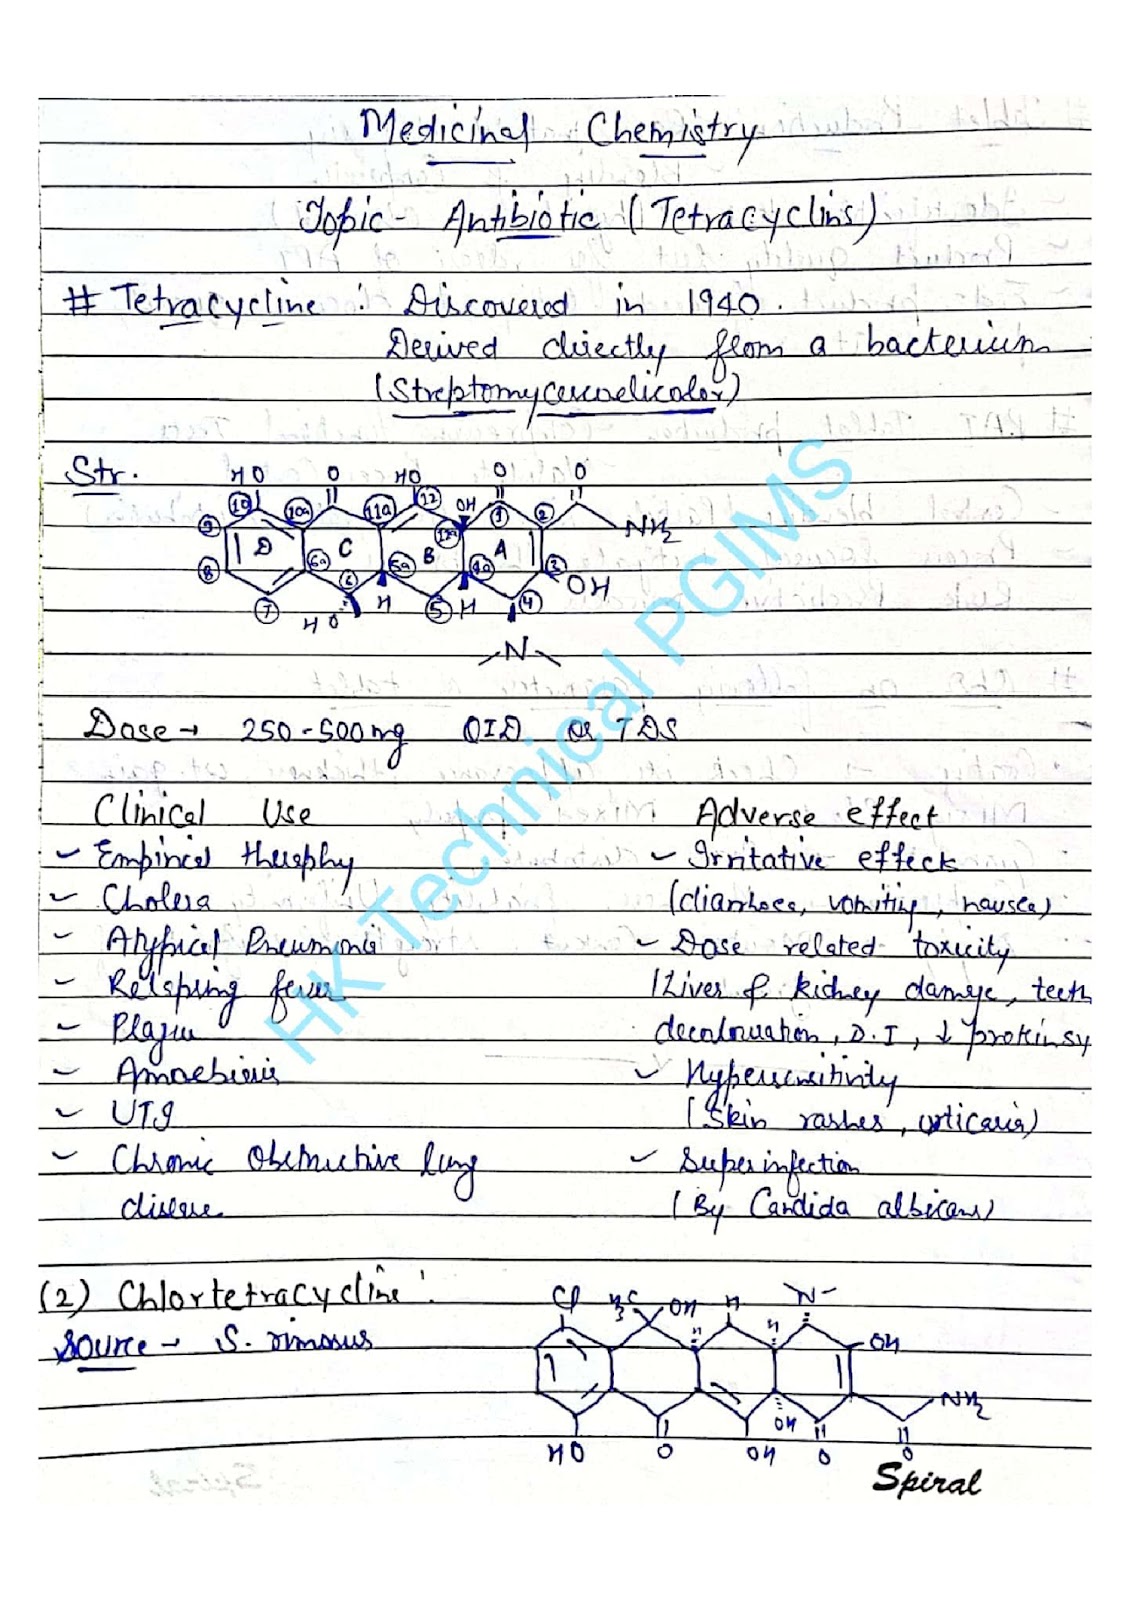 Medicinal Chemistry
Topic - Antibiotic (Tetracyclins)
# Tetracycline : Discovered in 1940.
Derived directly from a bacterium
(Streptomycescoelicolor)
Str.
HO O HO OH O O
10 10a 11a 12 12a 1 2 NH2
9 D C B A
8 6a 6 5a 4a 3 OH
7 HO H 5 H 4
N
Dose → 250-500mg QID or TDS
Clinical Use
Empirical theraphy
Cholera
Atypical Pneumonia
Relapsing fever
Plague
Amoebiasis
UTI
Chronic Obstructive lung
disease
Adverse effect
Irritative effect
(diarrhoea, vomiting, nausea)
Dose related toxicity
(Liver & kidney damage, teeth
decolouration, D.I, ↓
Hypersensitivity
(Skin rashes, urticaria)
Superinfection
(By Candida albicans)
(2) Chlortetracycline :
Source → S. rimosus
Cl H3C OH H H H N
OH
NH2
HO O OH OH O O
Spiral
HK Technical PGIMS